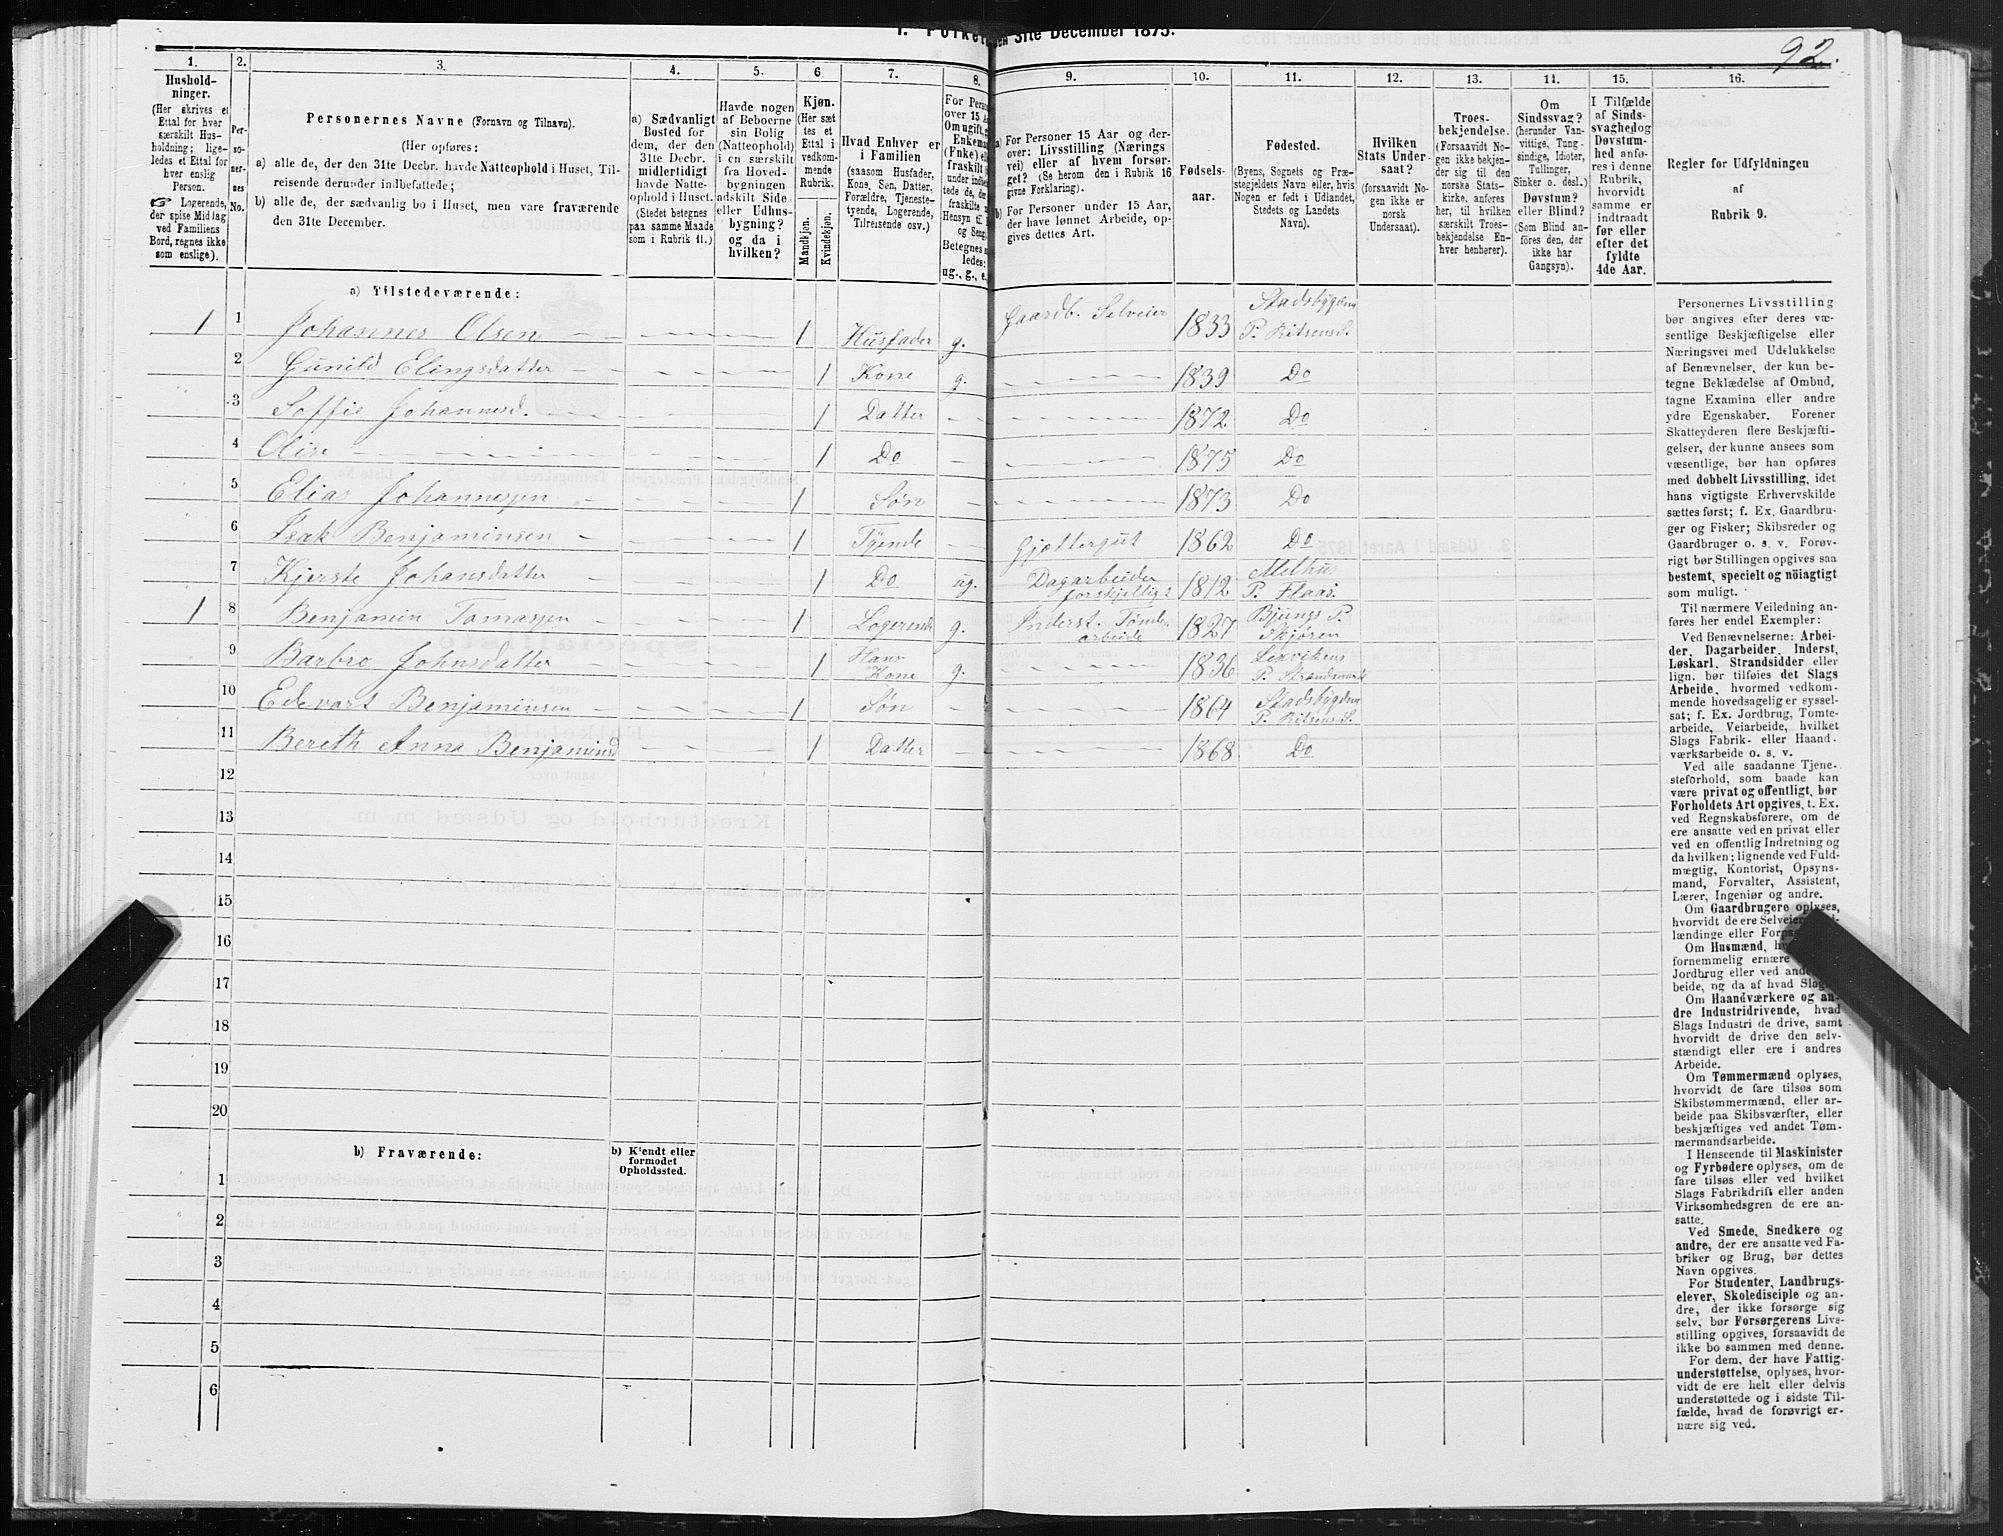 92.
den 31te December 1875.
1.
Hushold-
ninger.
(Her skrives et
Ettal for hver
særskilt Hus-
holdning; lige-
ledes et Ettal for
hver enslig
Person.
☞ Logerende,
der spise Middag
ved Familiens
Bord, regnes ikke
som enslige).
2.
Per-
so-
ner-
nes
No.
3.
Personernes Navne (Fornavn og Tilnavn).
(Her opføres:
a) alle de, der den 31te Decbr. havde Natteophold i Huset, Til-
reisende derunder indbefattede;
b) alle de, der sædvanlig bo i Huset, men vare fraværende
den 31te December.
4.
a) Sædvanligt
Bosted for
dem, der den
31te Decbr.
midlertidigt
havde Natte-
ophold i Huset.
(Stedet betegnes
paa samme Maade
som i Rubrik 11.)
5.
Havde nogen
af Beboerne
sin Bolig
(Natteophold)
i en særskilt
fra Hoved-
bygningen
adskilt Side-
eller Udhus-
bygning?
og da i
hvilken?
6.
Kjøn.
(Her sæt-
tes et
Ettal i
vedkom-
mende
Rubrik.
Mandkjøn.
Kvindekjøn.
7.
Hvad Enhver er
i Familien
(saasom Husfader,
Kone, Søn, Datter,
Forældre, Tjeneste-
tyende, Logerende,
Tilreisende osv.)
8.
For Perso
over 15 A
Om ugift, g
Enkema
(Fnke) e
fraskilt
ug., g., e.
9.
a) For Personer 15 Aar og der-
over: Livsstilling (Nærings
vei) eller af hvem forsør-
get? (Se herom den i Rubrik 16
givne Forklaring).
b) For Personer under 15 Aar,
der have lønnet Arbeide, op-
gives dettes Art.
10.
Fødsels-
aar.
11.
Fødested.
(Byens, Sognets og Præ-
stegjeldets Navn eller, hvis
Nogen er født i Udlandet,
Stedets og Landets
Navn).
12.
Hvilken
Stats Under-
saat?
(forsaavidt No-
gen ikke er
norsk
Undersaat).
13.
Troes-
bekjendelse.
(Forsaavidt No-
gen ikke bekjen-
der sig til den
norske Stats-
kirke, anføres
her, til hvilken
særskilt Troes-
bekjendelse En-
hver henhører).
14.
Om
Sindssvag?
(herunder Van-
vittige, Tung-
sindige, Idioter,
Tullinger,
Sinker o. desl.)
Døvstum?
eller Blind?
(Som Blind an-
føres den, der
ikke har
Gangsyn).
15.
I Tilfælde
af Sinds-
svaghed og
Døvstum-
hed anfø-
res i denne
Rubrik,
hvorvidt
samme er
indtraadt
før eller
efter det
fyldte
4de Aar.
16.
Regler for Udfyldningen
af
Rubrik 9.
a) Tilstedeværende:
1 1 Johannes Olsen 1 Husfader g. Gaardb. Selveier 1833 Stadsbygdens P. Ritsens S.
2 Gunild Elingsdatter 1 Kone g. 1839 Do
3 Soffie Johannesd. 1 Datter 1872 Do
4 Olise 1 Do 1875 Do
5 Elias Johannessen 1 Søn 1873 Do
6 Isak Benjaminsen 1 Tyende Gjættergut 1862 Do
7 Kjerste Johansdatter 1 Do ug. Dagarbeider forskjelligt 1812 Melhus P. Flaas.
1 8 Benjamin Tomassen 1 Logerende g. Inderst. Tønde arbeide 1827 Bjungs P. Skjøren
9 Barbro Johnsdatter 1 Hans Kone g. 1836 Lexvikens P. Strandmark
10 Edevart Benjaminsen 1 Søn 1864 Stadsbygdens P. Ritsens S.
11 Bereth Anna Benjaminsd 1 Datter 1868 Do
12
13
14
15
16
17
18
19
20
b) Fraværende:
b) Kjendt eller
formodet
Opholdssted.
1
2
3
4
5
6
Personernes Livsstilling
bør angives efter deres væ-
sentlige Beskjæftigelse eller
Næringsvei med Udelukkelse
af Benævnelser, der kun be-
tegne Beklædelse af Ombud,
tagne Examina eller andre
ydre Egenskaber. Forener
Skatteyderen flere Beskjæfti-
gelser, der kunne ansees som
væsentlige, bør han opføres
med dobbelt Livsstilling, idet
hans vigtigste Erhvervskilde
sættes først; f. Ex. Gaardbru-
ger og Fisker; Skibsreder og
Gaardbruger o. s. v. Forøv-
rigt bør Stillingen opgives saa
bestemt, specielt og nöiagtigt
som muligt.
Til nærmere Veiledning an-
føres her endel Exempler:
Ved Benævnelserne: Arbei-
der, Dagarbeider, Inderst,
Løskarl, Strandsidder eller
lign. bør tilføies det Slags
Arbeide, hvormed vedkom-
mende hovedsagelig er syssel-
sat; f. Ex. Jordbrug, Tomte-
arbeide, Veiarbeide, hvilket
Slags Fabrik- eller Haand-
værksarbeide o. s. v.
Ved alle saadanne Tjene-
steforhold, som baade kan
være privat og offentligt, bør
Forholdets Art opgives, t. Ex.
ved Regnskabsførere, om de
ere ansatte ved en privat eller
ved en offentlig Indretning og
da hvilken; lignende ved Fuld-
mægtig, Kontorist, Opsyns-
mand, Forvalter, Assistent,
Lærer, Ingeniør og andre.
Om Gaardbrugere oplyses,
hvorvidt de ere Selveiere,
lændinge eller
Om Husmænd,
fornemmelig ernære
Jordbrug eller ved
beide, og da af hvad
Om Haandværkere og an-
dre Industridrivende, hvad
Slags Industri de drive, samt
hvorvidt de drive den selv-
stændigt eller ere i andres
Arbeide.
Om Tømmermænd oplyses,
hvorvidt de fare tilsøs som
Skibstømmermænd, eller ar-
beide paa Skibsværfter, eller
beskjæftiges ved andet Tøm-
mermandsarbeide.
I Henseende til Maskinister
og Fyrbødere oplyses, om de
fare tilsøs eller ved hvilket
Slags Fabrikdrift eller anden
Virksomhedsgren de ere an-
satte.
Ved Smede, Snedkere og
andre, der ere ansatte ved Fa-
briker og Brug, bør dettes
Navn opgives.
For Studenter, Landbrugs-
elever, Skoledisciple og an-
dre, der ikke forsørge sig
selv, bør Forsørgerens Livs-
stilling opgives, forsaavidt de
ikke bo sammen med denne.
For dem, der have Fattig-
understøttelse, oplyses, hvor-
vidt de ere helt eller delvis
understøttede og i sidste Til-
fælde, hvad de forøvrigt er-
nære sig ved.